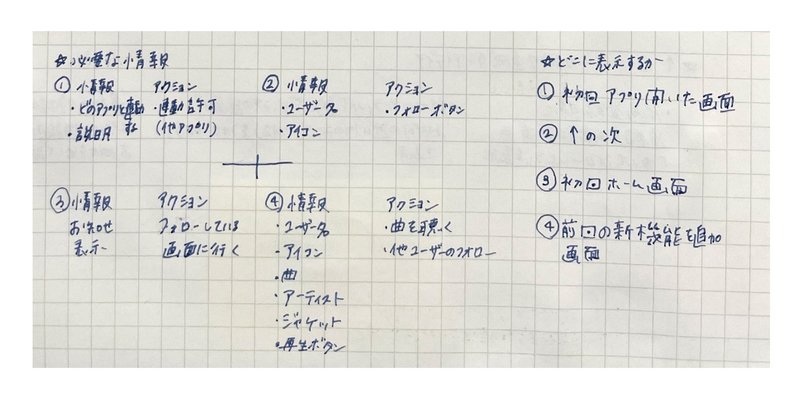 ☆必要な情報
① 情報 アクション
・どのアプリと連動するか ・連動許可
・説明 (他アプリ)
② 情報 アクション
・ユーザー名 ・フォローボタン
・アイコン
③ 情報 アクション
お知らせ フォローしている
表示 画面に行く
④ 情報 アクション
・ユーザー名 ・曲を聴く
・アイコン ・他ユーザーのフォロー
・曲
・アーティスト
・ジャケット
・再生ボタン
☆どこに表示するか
① 初回アプリ開いた画面
② ↑の次
③ 初回ホーム画面
④ 前回の新機能を追加
画面